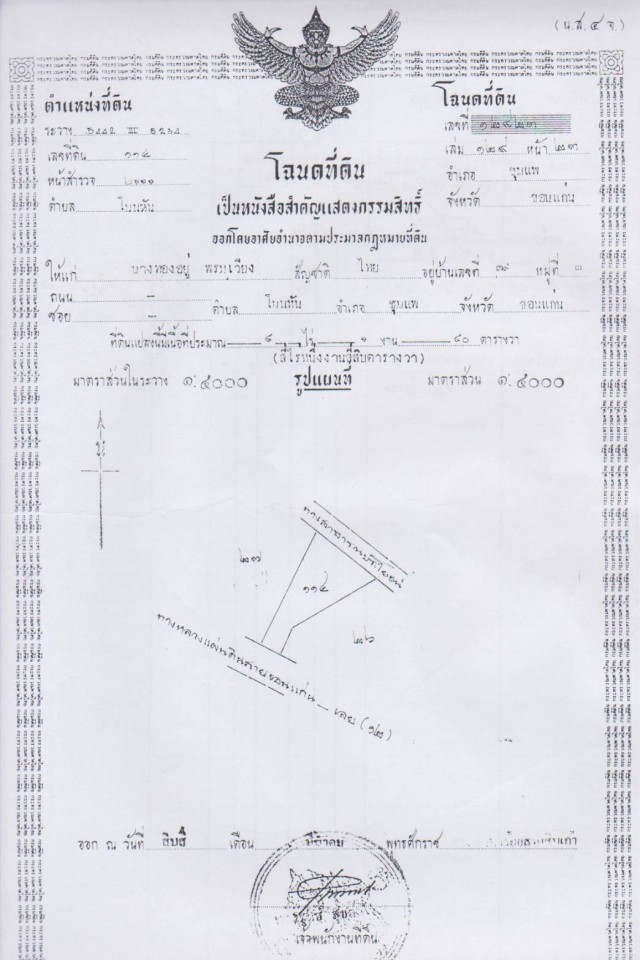 (น.ส. ๔ จ.)
ตำแหน่งที่ดิน
ระวาง 5442 III 6234
เลขที่ดิน ๑๑๔
หน้าสำรวจ
ตำบล โนนหัน
โฉนดที่ดิน
เลขที่ ๑๒๔๒๓
เล่ม ๑๒๕ หน้า ๒๓
อำเภอ ชุมแพ
จังหวัด ขอนแก่น
โฉนดที่ดิน
เป็นหนังสือสำคัญแสดงกรรมสิทธิ์
ออกโดยอาศัยอำนาจตามประมวลกฎหมายที่ดิน
ให้แก่ นางทองอยู่ พรมเวียง สัญชาติ ไทย อยู่บ้านเลขที่ ๓๙ หมู่ที่ ๓
ถนน – ซอย – ตำบล โนนหัน อำเภอ ชุมแพ จังหวัด ขอนแก่น
ที่ดินแปลงนี้มีเนื้อที่ประมาณ ๔ ไร่ ๑ งาน ๔๐ ตารางวา
(สี่ไร่หนึ่งงานสี่สิบตารางวา)
มาตราส่วนในระวาง ๑:๔๐๐๐ รูปแผนที่ มาตราส่วน ๑:๔๐๐๐
น
ทางสาธารณประโยชน์
๒๑๗
๑๑๔
๒๒๖
ทางหลวงแผ่นดินสายขอนแก่น – เลย (๑๒)
ออก ณ วันที่ สิบสี่ เดือน มีนาคม พุทธศักราช
เจ้าพนักงานที่ดิน